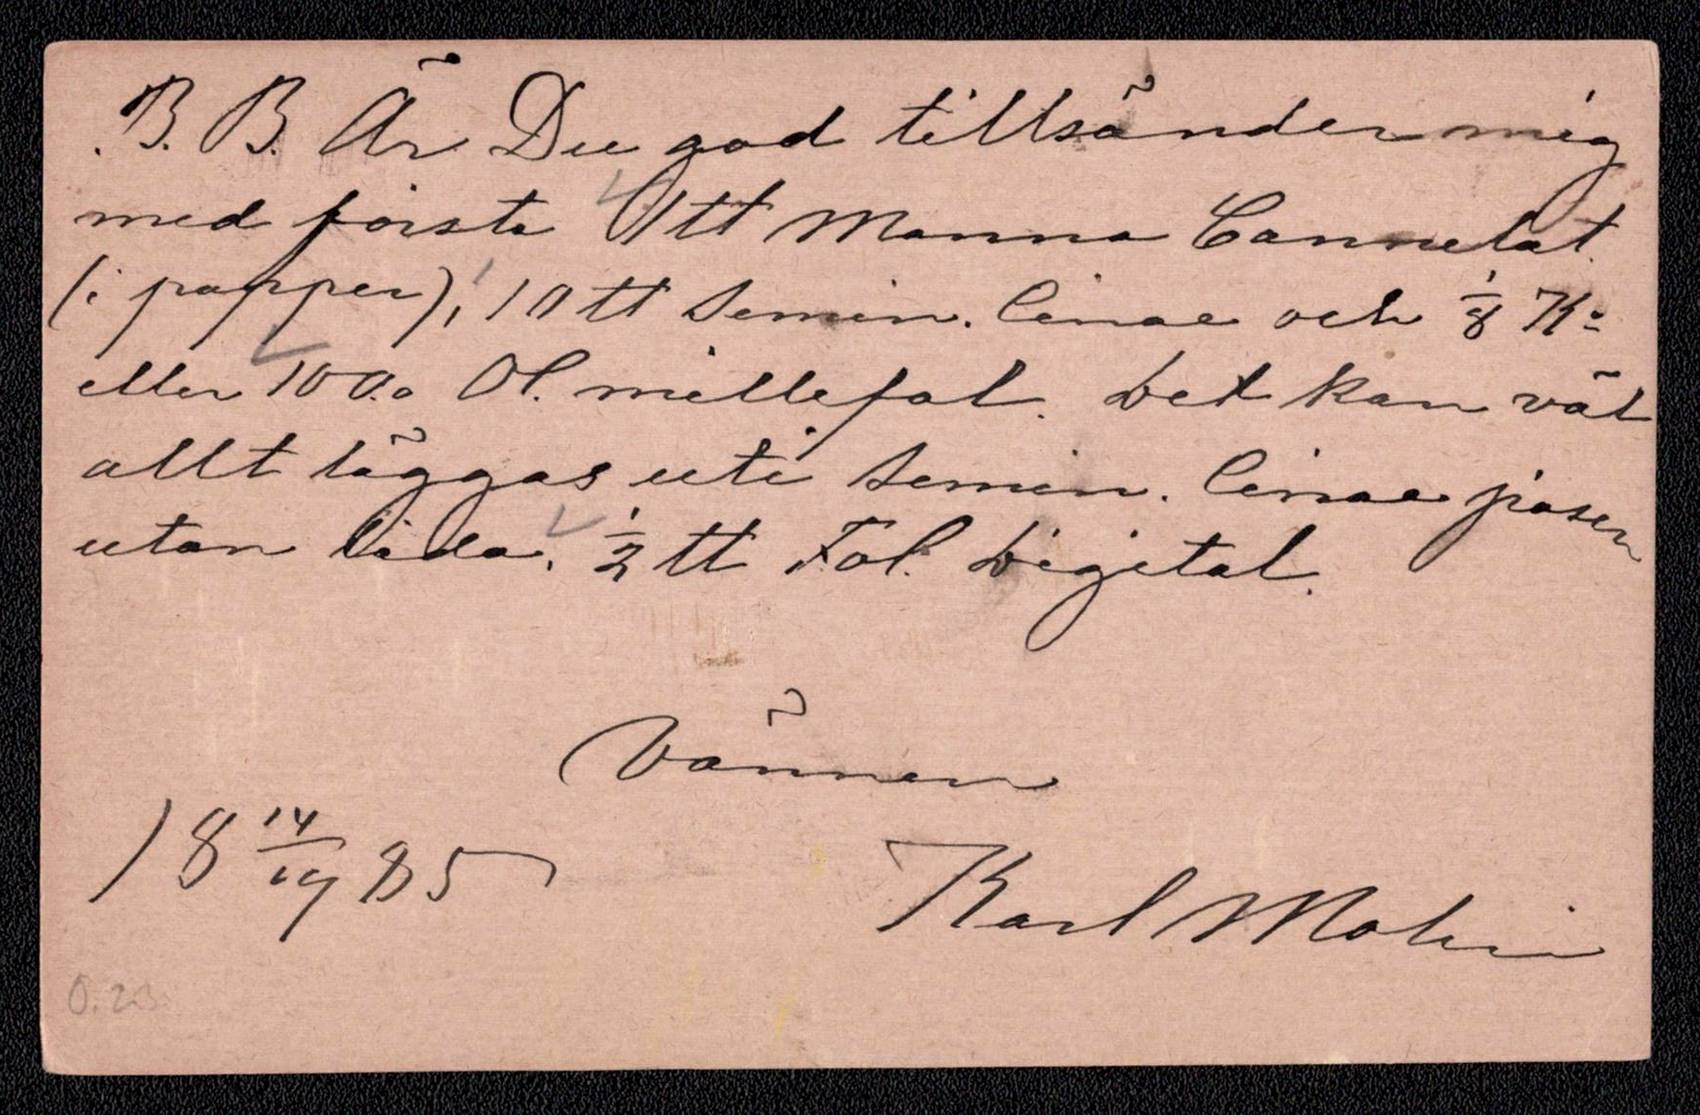 B. B. Är Du god tillsänder mig
med första 1 tt Manna Cannelat.
(i papper), 10 tt Semin. Cinae och 1/8 Ko
eller 100.0 Ol. millefol. Det kan väl
allt läggas uti Semin. Cinae påsen
utan låda. 1/2 tt Fol. Digital.
Vännen
18 14/19 85
Karl Molin
0.23